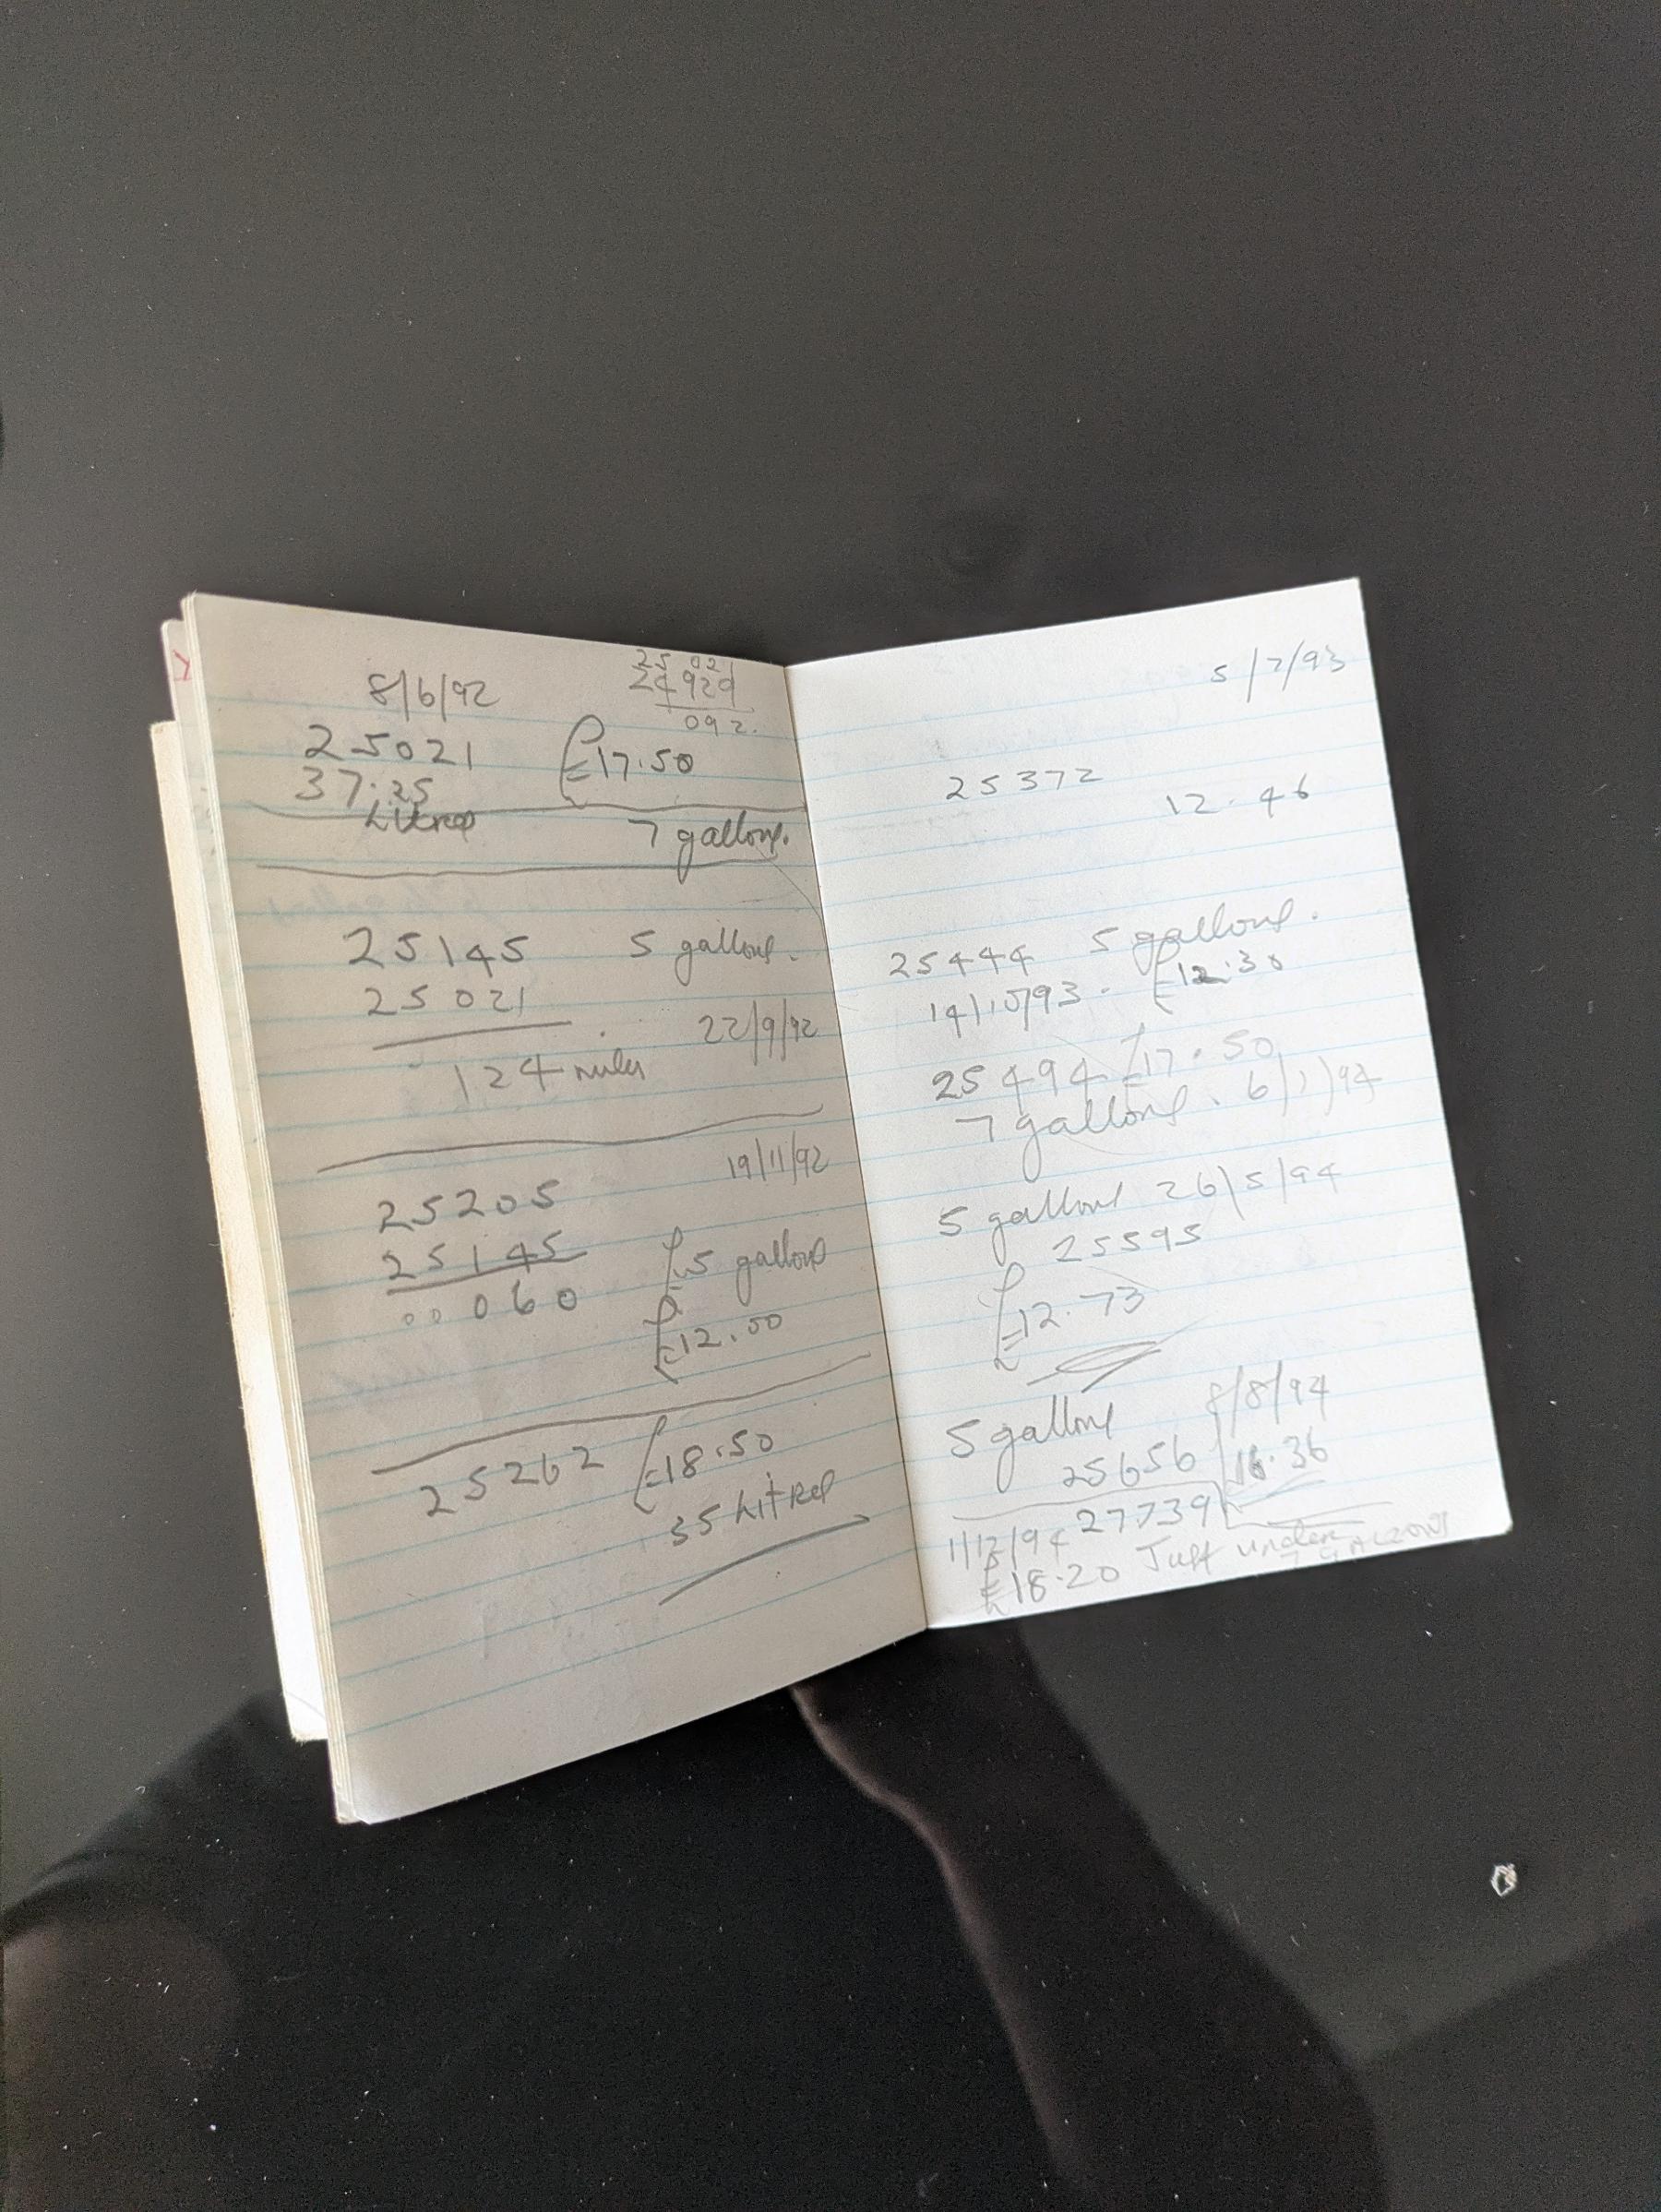 8/6/92
25 021
24929
092.
25021
£17.50
37.25
Litres
7 gallons.
25145 5 gallons.
25021
22/9/92
124 miles
19/11/92
25205
25145
00060
£ 5 gallons
£12.50
25262 £18.50
35 Litres
5/7/93
25372
12.46
25444 5 gallons.
14/10/93. £12.30
25494 £17.50
7 gallons. 6/1/94
5 gallons 26/5/94
25595
£12.73
5 gallons 8/8/94
25656
27739
1/12/94
£18.20 Just under
7 GALLONS